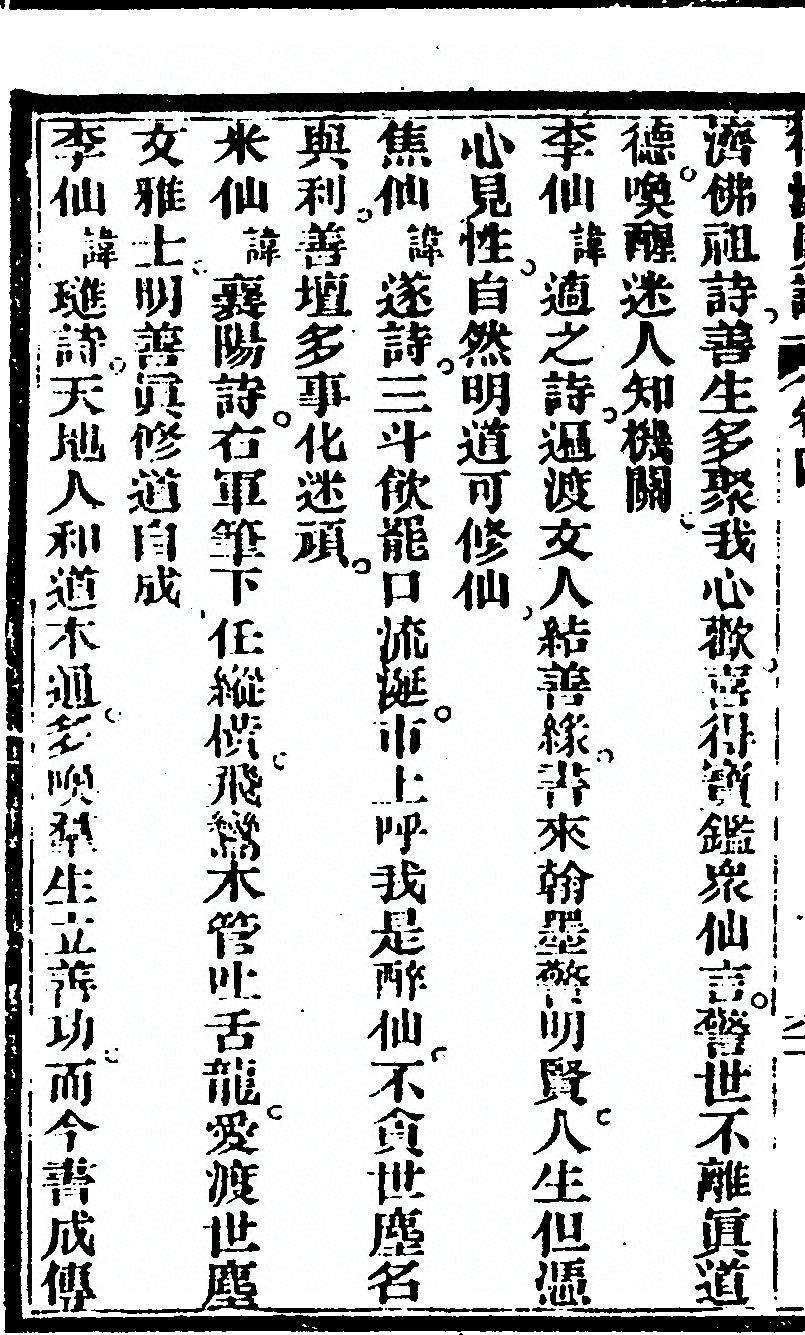 濟佛祖詩善生多聚我心歡喜得寶鑑衆仙言警世不離眞道
德喚醒迷人知機關
李仙諱適之詩逼渡女人結善緣書來翰墨警明賢人生但憑
心見性自然明道可修仙
焦仙諱遂詩三斗飲罷口流涎市上呼我是醉仙不貪世塵名
與利善壇多事化迷頑
米仙諱襄陽詩右軍筆下任縱橫飛鸞木管吐舌龍愛渡世塵
文雅士明善眞修道自成
李仙諱璡詩天地人和道本通多喚羣生立善功而今書成傳